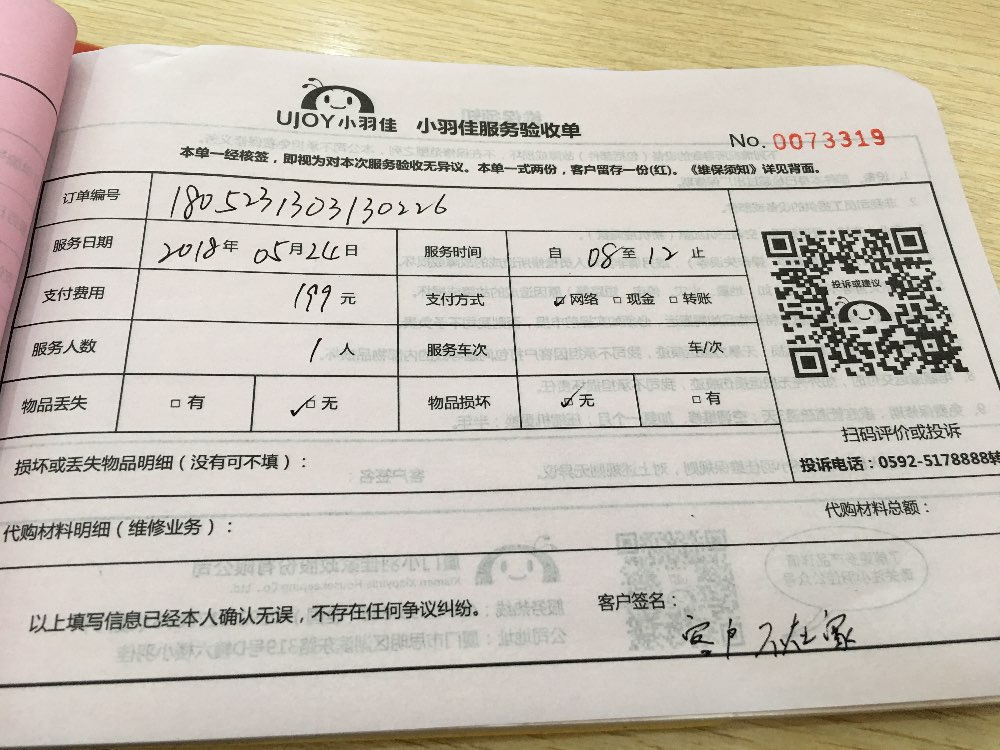 UJOY小羽佳 小羽佳服务验收单
No. 0073319
本单一经核签，即视为对本次服务验收无异议。本单一式两份，客户留存一份(红)。《维保须知》详见背面。
订单编号 180523130313022​6
服务日期 2018年 05月24日 服务时间 自 08至 12 止
支付费用 199元 支付方式 ☑网络 □现金 □转账
服务人数 1人 服务车次 车/次
物品丢失 □ 有 ☑ 无 物品损坏 ☑无 □ 有
投诉或建议
扫码评价或投诉
投诉电话：0592-5178888转
损坏或丢失物品明细（没有可不填）：
代购材料明细（维修业务）：
代购材料总额：
以上填写信息已经本人确认无误，不存在任何争议纠纷。
客户签名：
客户不在家